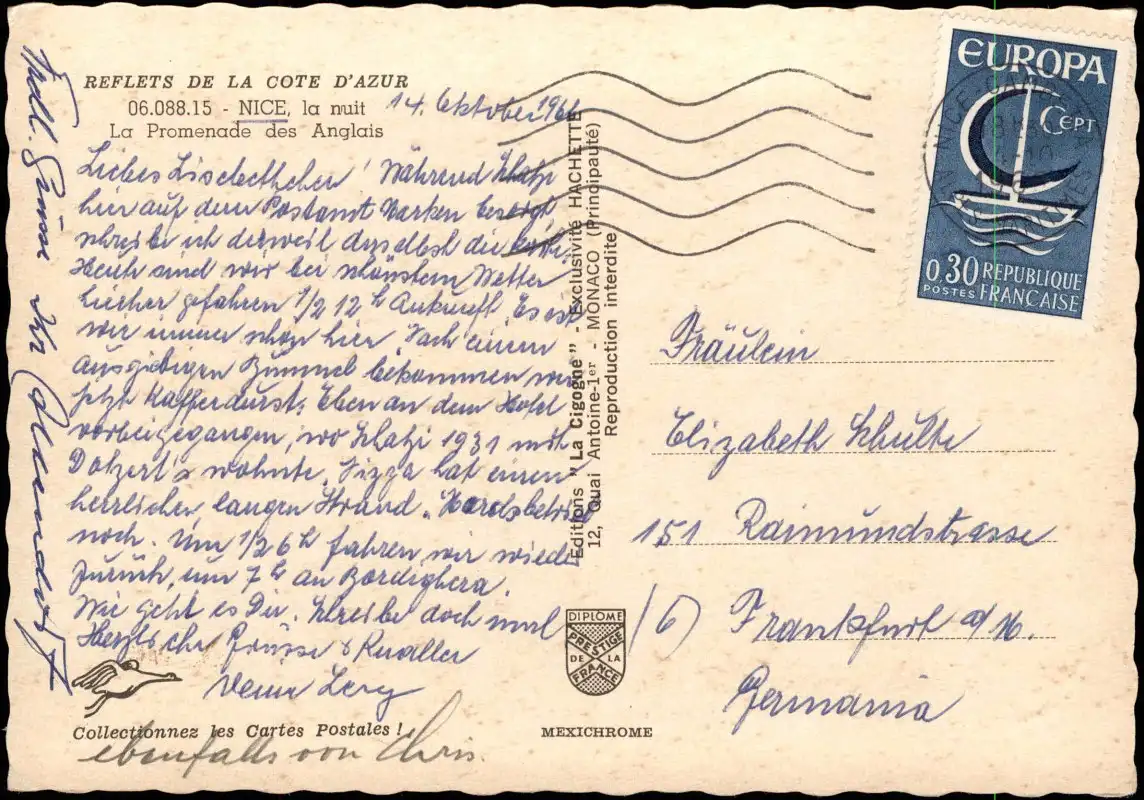 REFLETS DE LA COTE D'AZUR
06.088.15 - NICE, la nuit
La Promenade des Anglais
14. Oktober 1966
Liebes Lisbethchen! Während Schatzi
hier auf dem Postamt Marken besorgt
schreibe ich derweil daselbst die Karte.
Heute sind wir bei schönstem Wetter
hierher gefahren 1/2 12 h Ankunft. Es ist
wie immer schön hier. Nach einem
ausgiebigen Bummel bekommen wir
jetzt Kaffeedurst. Eben an dem Hotel
vorbeigegangen, wo Schatzi 1931 mit
wohnte. Nizza hat einen
herrlichen langen Strand.
noch. Um 1/2 6 h fahren wir wieder
zurück, um 7 h an Bordighera.
Wie geht es Dir. Schreibe doch mal
Herzliche Grüsse & Knaller
ebenfalls von Chris.
Grüsse
Collectionnez les Cartes Postales!
Editions "La Cigogne" - Exclusivité HACHETTE
12, Quai Antoine-1er - MONACO (Principauté)
Reproduction interdite
DIPLOME
PRESTIGE
DE LA
FRANCE
MEXICHROME
EUROPA
CEPT
0,30 REPUBLIQUE
POSTES FRANÇAISE
Fräulein
Elizabeth Schulte
151 Raimundstrasse
/6) Frankfurt a/M.
Germania